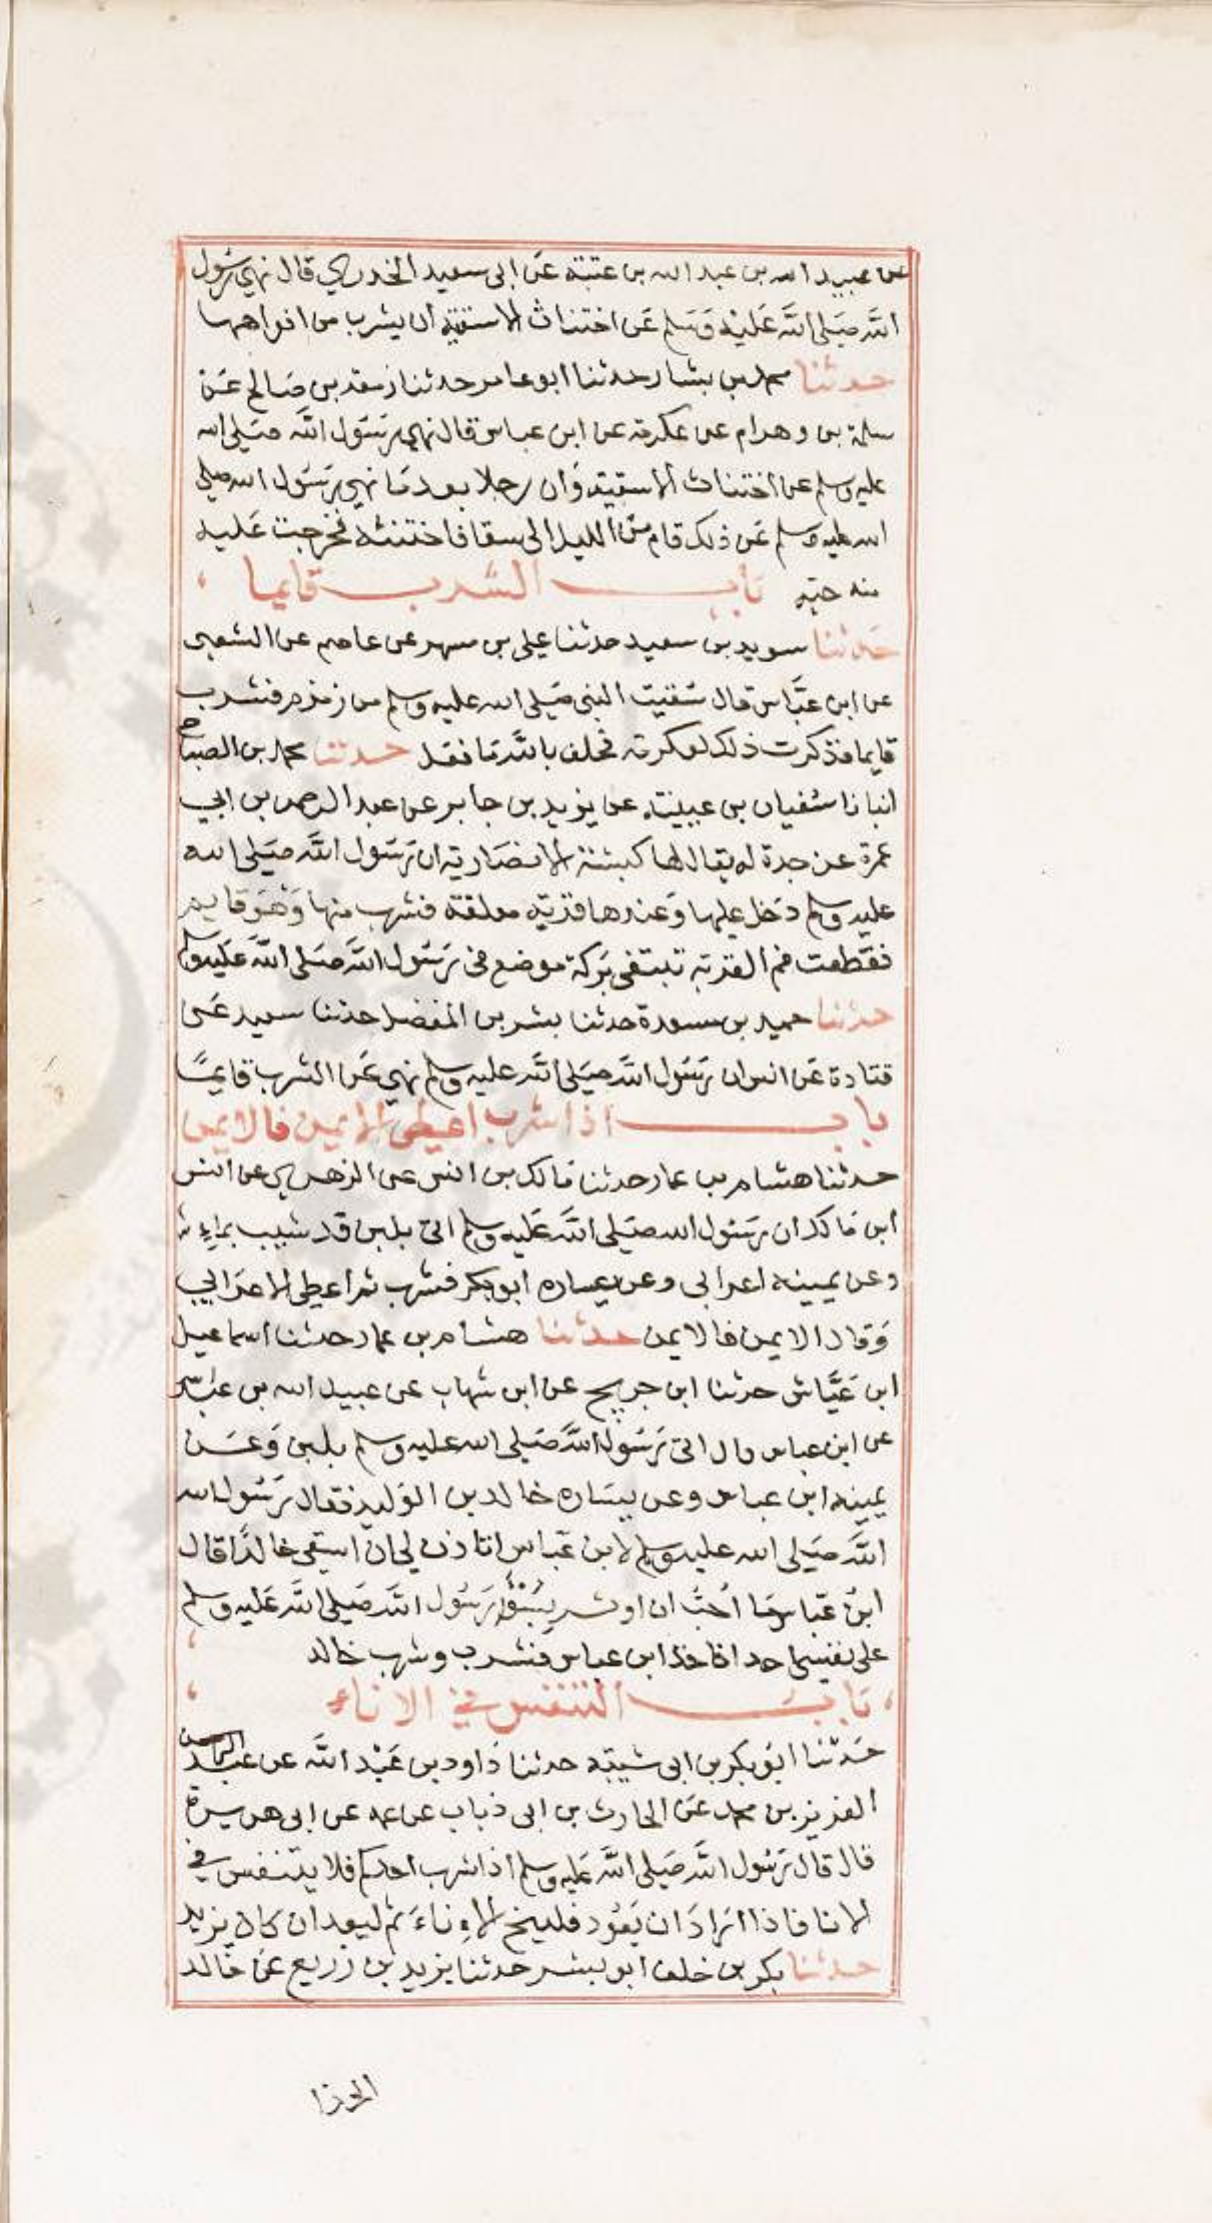 عن عبيد الله بن عبد الله بن عتبة عن ابى سعيد الخدري قال نهي رسول
الله صَلى الله عَليْه وَسَلم عَن اختناث الاسقية ان يشرب من افواهها
حدثنا محمد بن بشار حدثنا ابو عامر حدثنا زمعة بن صَالح عَن
سلمة بن وهرام عن عكرمة عن ابن عباس قال نهي رَسُول الله صَلى الله
عليه وسلم عن اختناث الاسقية وَان رجلا بعد مَا نهي رَسُول الله صلى
الله عليه وَسلم عَن ذلك قام من الليل الى سقا فاختنثه فخرجت عَليه
منه حية بَاب الشرب قايما
حَدثنا سويد بن سعيد حدثنا علي بن مسهر عن عاصم عن الشعبى
عن ابن عبَّاس قال سَقيت النبى صَلى الله عليه وسلم من زمزم فشرب
قايما فذكرت ذلك لعكرمة فحلف بالله مَا فعل حدثنا محمد بن الصباح
انبانا سُفيان بن عيينة عن يزيد بن جابر عن عبد الرحمن بن ابي
عمرة عن جدة له يقال لها كبشة الانصَارية ان رَسُول الله صَلى الله
عليه وسلم دَخل عليها وَعندها قربة معلقة فشرب منها وَهُوَ قايم
فقطعت فم القربة تبتغى بَركة موضع فى رَسُول الله صَلى الله عَليه وسلم
حدثنا حميد بن مسعدة حدثنا بشر بن المفضل حدثنا سعيد عَن
قتادة عَن انس ان رَسُول الله صَلى الله عليه وسلم نهي عَن الشرب قايمًا
باب اذا شرب اعطى الايمن فالايمن
حدثنا هشام بن عمار حدثنا مَالك بن انس عن الزهري عن انس
ابن مَالك ان رَسُول الله صَلى الله عَليه وسلم اتى بلبن قد شيب بماء
وعن يمينه اعرابى وعن يساره ابو بكر فشرب ثم اعطى الاعرَابي
وَقال الايمن فالايمن حدثنا هشام بن عمار حدثنا اسماعيل
ابن عَيَّاش حدثنا ابن جريج عن ابن شهاب عن عبيد الله بن عبد الله
عن ابن عباس قال اتى رَسُول الله صَلى الله عليه وسلم بلبن وَعَن
يمينه ابن عباس وعن يسَاره خالد بن الوَليد فقال رَسُول الله
الله صَلى الله عليه وسلم لابن عَباس اتاذن لي ان اسقى خالدًا قال
ابن عَباس مَا اُحبُ ان اوثر بسُؤر رَسُول الله صَلى الله عَليه وسلم
على نفسى احدا فاخذ ابن عباس فشرب وشرب خالد
بَاب التنفس في الاناء
حَدثنا ابُو بكر بن ابى شيبَة حدثنا دَاود بن عَبْد الله عن عبد
العزيز بن محمد عَن الحارث بن ابى ذباب عن عمه عن ابى هريرة
قال قال رَسُول الله صَلى الله عَليه وسلم اذا شرب احدكم فلا يتنفس في
الانا فاذا ارَادَ ان يَعُود فلينح الاِناءَ ثم ليعد ان كان يريد
حدثنا بكر بن خلف ابو بشر حدثنا يزيد بن زريع عَن خالد
الحذا